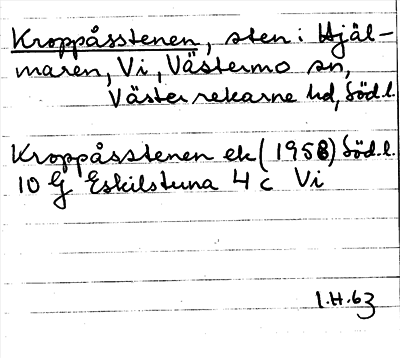 Kroppåsstenen, sten i Hjäl-
maren, Vi, Västermo sn,
Västerrekarne hd, Södl.
Kroppåsstenen ek (1958) Södl.
10 G Eskilstuna 4 c Vi
1.H.63